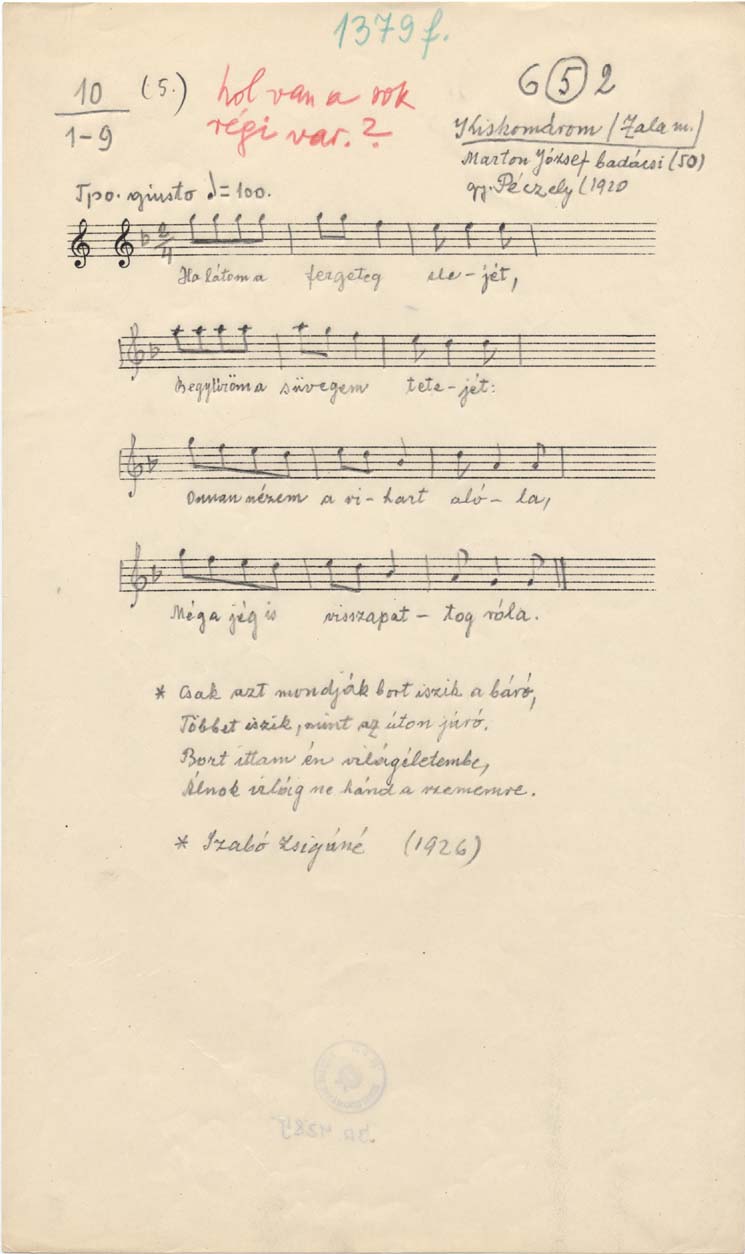 1379 f.
10 (5.)
1-9
hol van a sok
régi var.?
6 5 2
Kiskomárom (Zala m.)
Marton József badácsi (50)
gy. Péczely (1920
Tpo. giusto ♩=100.
2/4
Ha látom a fergeteg ele-jét,
Begyűröm a süvegem tete-jét:
Onnan nézem a vi-hart aló-la,
Még a jég is visszapat-tog róla.
* Csak azt mondják bort iszik a báró,
Többet iszik, mint az úton járó.
Bort ittam én világéletembe,
Álnok ne hánd a szememre.
* Szabó Zsigáné (1926)